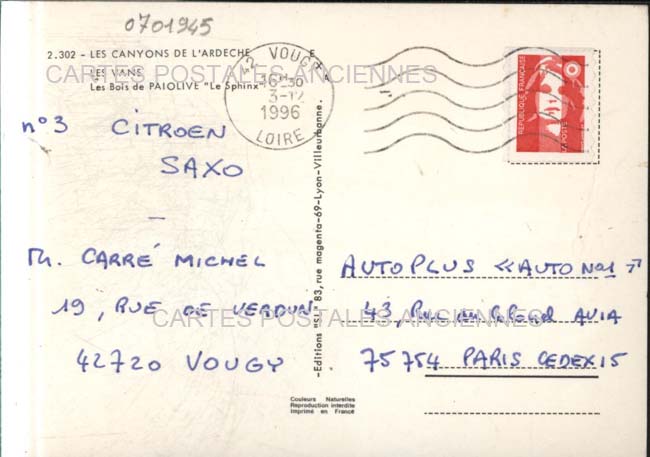 0701945
2.302 - LES CANYONS DE L'ARDECHE
LES VANS
Les Bois de PAIOLIVE "Le Sphinx"
CARTES POSTALES ANCIENNES
42 VOUGY
16H30
3-12
1996
LOIRE
REPUBLIQUE FRANÇAISE
LA POSTE
n°3 CITROEN
SAXO
—
M. CARRÉ MICHEL
19, RUE DE VERDUN
42720 VOUGY
-Editions "SL" 83, rue magenta-69-Lyon-Villeurbanne.
AUTOPLUS «AUTO N°1»
43, Rue du AVIA
75754 PARIS CEDEX 15
CARTES POSTALES ANCIENNES
Couleurs Naturelles
Reproduction interdite
Imprimé en France